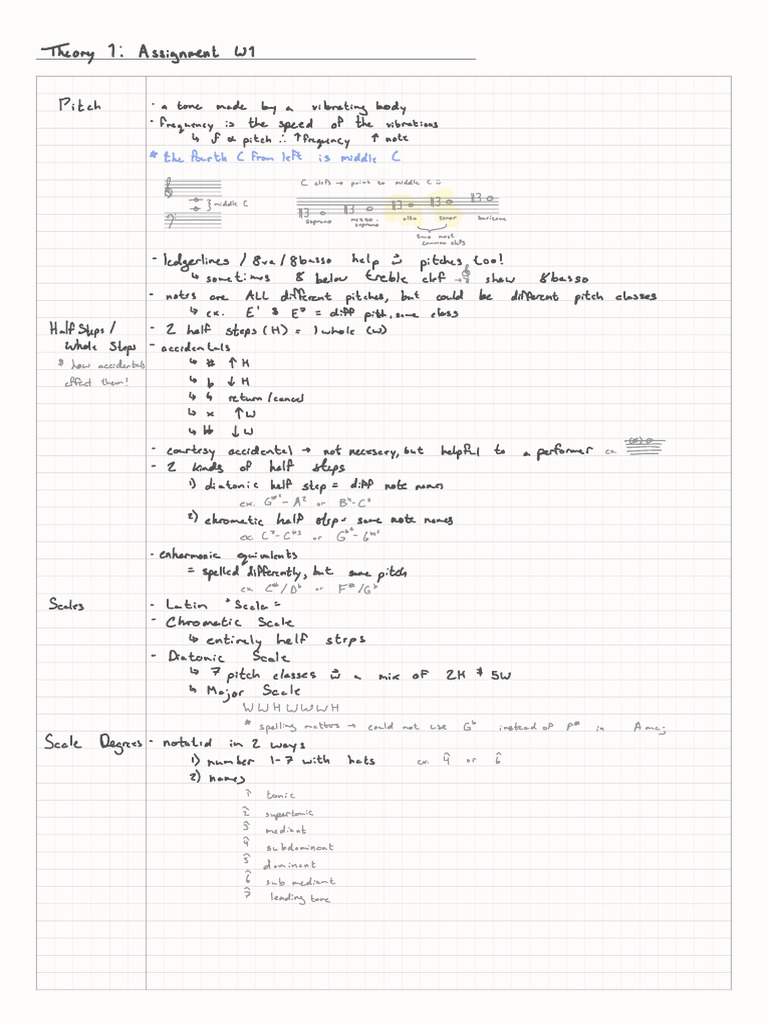 Theory 1: Assignment W1
Pitch
· a tone made by a vibrating body
· frequency is the speed of the vibrations
↳ f ∝ pitch ∴ ↑frequency ↑ note
* the fourth C from left is middle C
} middle C
C clefs → point to middle C
soprano
mezzo-soprano
alto
tenor
baritone
two most
common clefs
- ledgerlines / 8va / 8basso help w̄ pitches, too!
↳ sometimes 8 below treble clef → show 8basso
- notes are ALL different pitches, but could be different pitch classes
↳ ex. = diff pith, same class
Half Steps /
Whole Steps
& how accidentals
effect them!
- 2 half steps (H) = 1 whole (W)
- accidentals
↳ # ↑ H
↳ b ↓ H
↳ ♮ return/cancel
↳ x ↑W
↳ bb ↓ W
- courtesy accidental → not necesery, but helpful to a performer ex
- 2 kinds of half steps
1) diatonic half step = diff note names
ex. or
2) chromatic half step = same note names
ex. or
- enharmonic equivalents
= spelled differently, but same pitch
ex C#/Db or F#/Gb
Scales
- Latin "Scala =
- Chromatic Scale
↳ entirely half steps
- Diatonic Scale
↳ 7 pitch classes w̄ a mix of 2H & 5W
↳ Major Scale
W W H W W W H
* spelling matters → could not use Gb instead of F# in A maj
Scale Degrees
- notated in 2 ways
1) number 1-7 with hats ex. 4̂ or 6̂
2) names
1̂ tonic
2̂ supertonic
3̂ mediant
4̂ subdominant
5̂ dominant
6̂ sub mediant
7̂ leading tone